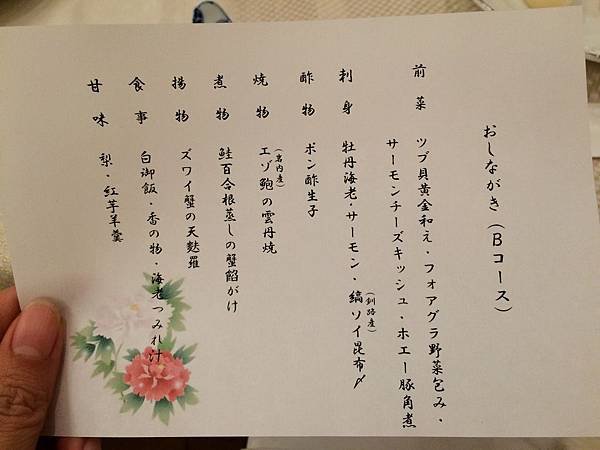 おしながき（Bコース）
前菜　ツブ貝黄金和え・フォアグラ野菜包み・
サーモンチーズキッシュ・ホエー豚角煮
刺身　牡丹海老・サーモン・縞ソイ昆布〆
（釧路産）
酢物　ポン酢生子
焼物　エゾ鮑の雲丹焼
（岩内産）
煮物　鮭百合根蒸しの蟹餡がけ
揚物　ズワイ蟹の天麩羅
食事　白御飯・香の物・海老つみれ汁
甘味　梨・紅芋羊羹